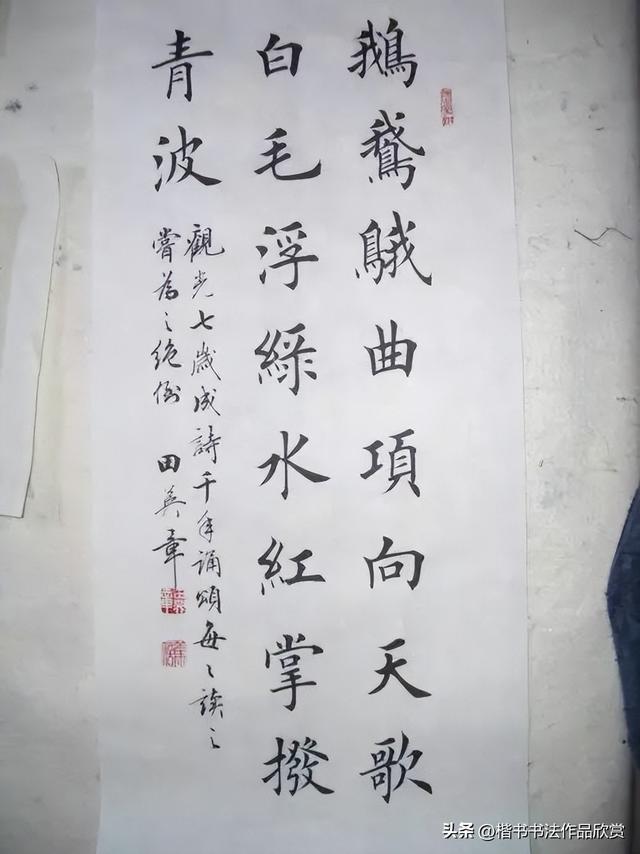 鵝鵞䳘曲項向天歌
白毛浮綠水紅掌撥
青波
觀光七歲成詩千年誦頌每々讀之
嘗為之絶倒
田英章
头条@楷书书法作品欣赏